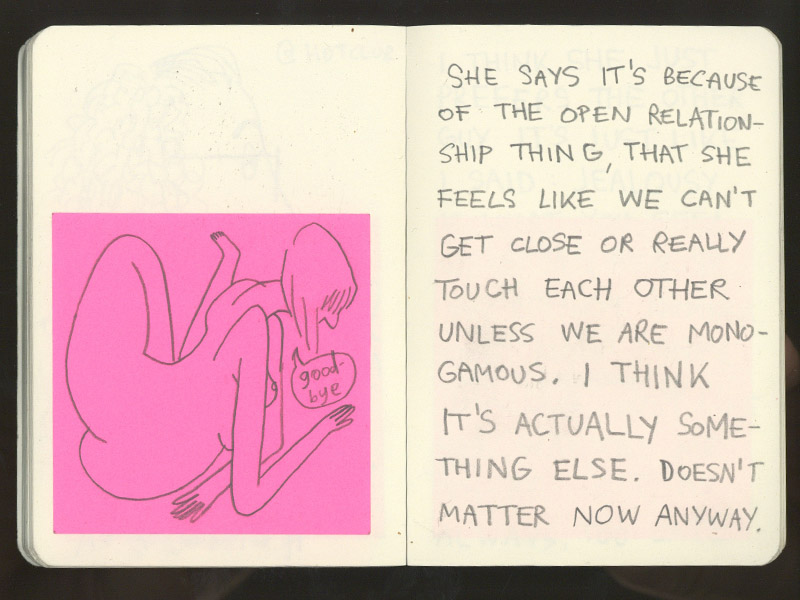 good-
bye
SHE SAYS IT'S BECAUSE
OF THE OPEN RELATION-
SHIP THING, THAT SHE
FEELS LIKE WE CAN'T
GET CLOSE OR REALLY
TOUCH EACH OTHER
UNLESS WE ARE MONO-
GAMOUS. I THINK
IT'S ACTUALLY SOME-
THING ELSE. DOESN'T
MATTER NOW ANYWAY.